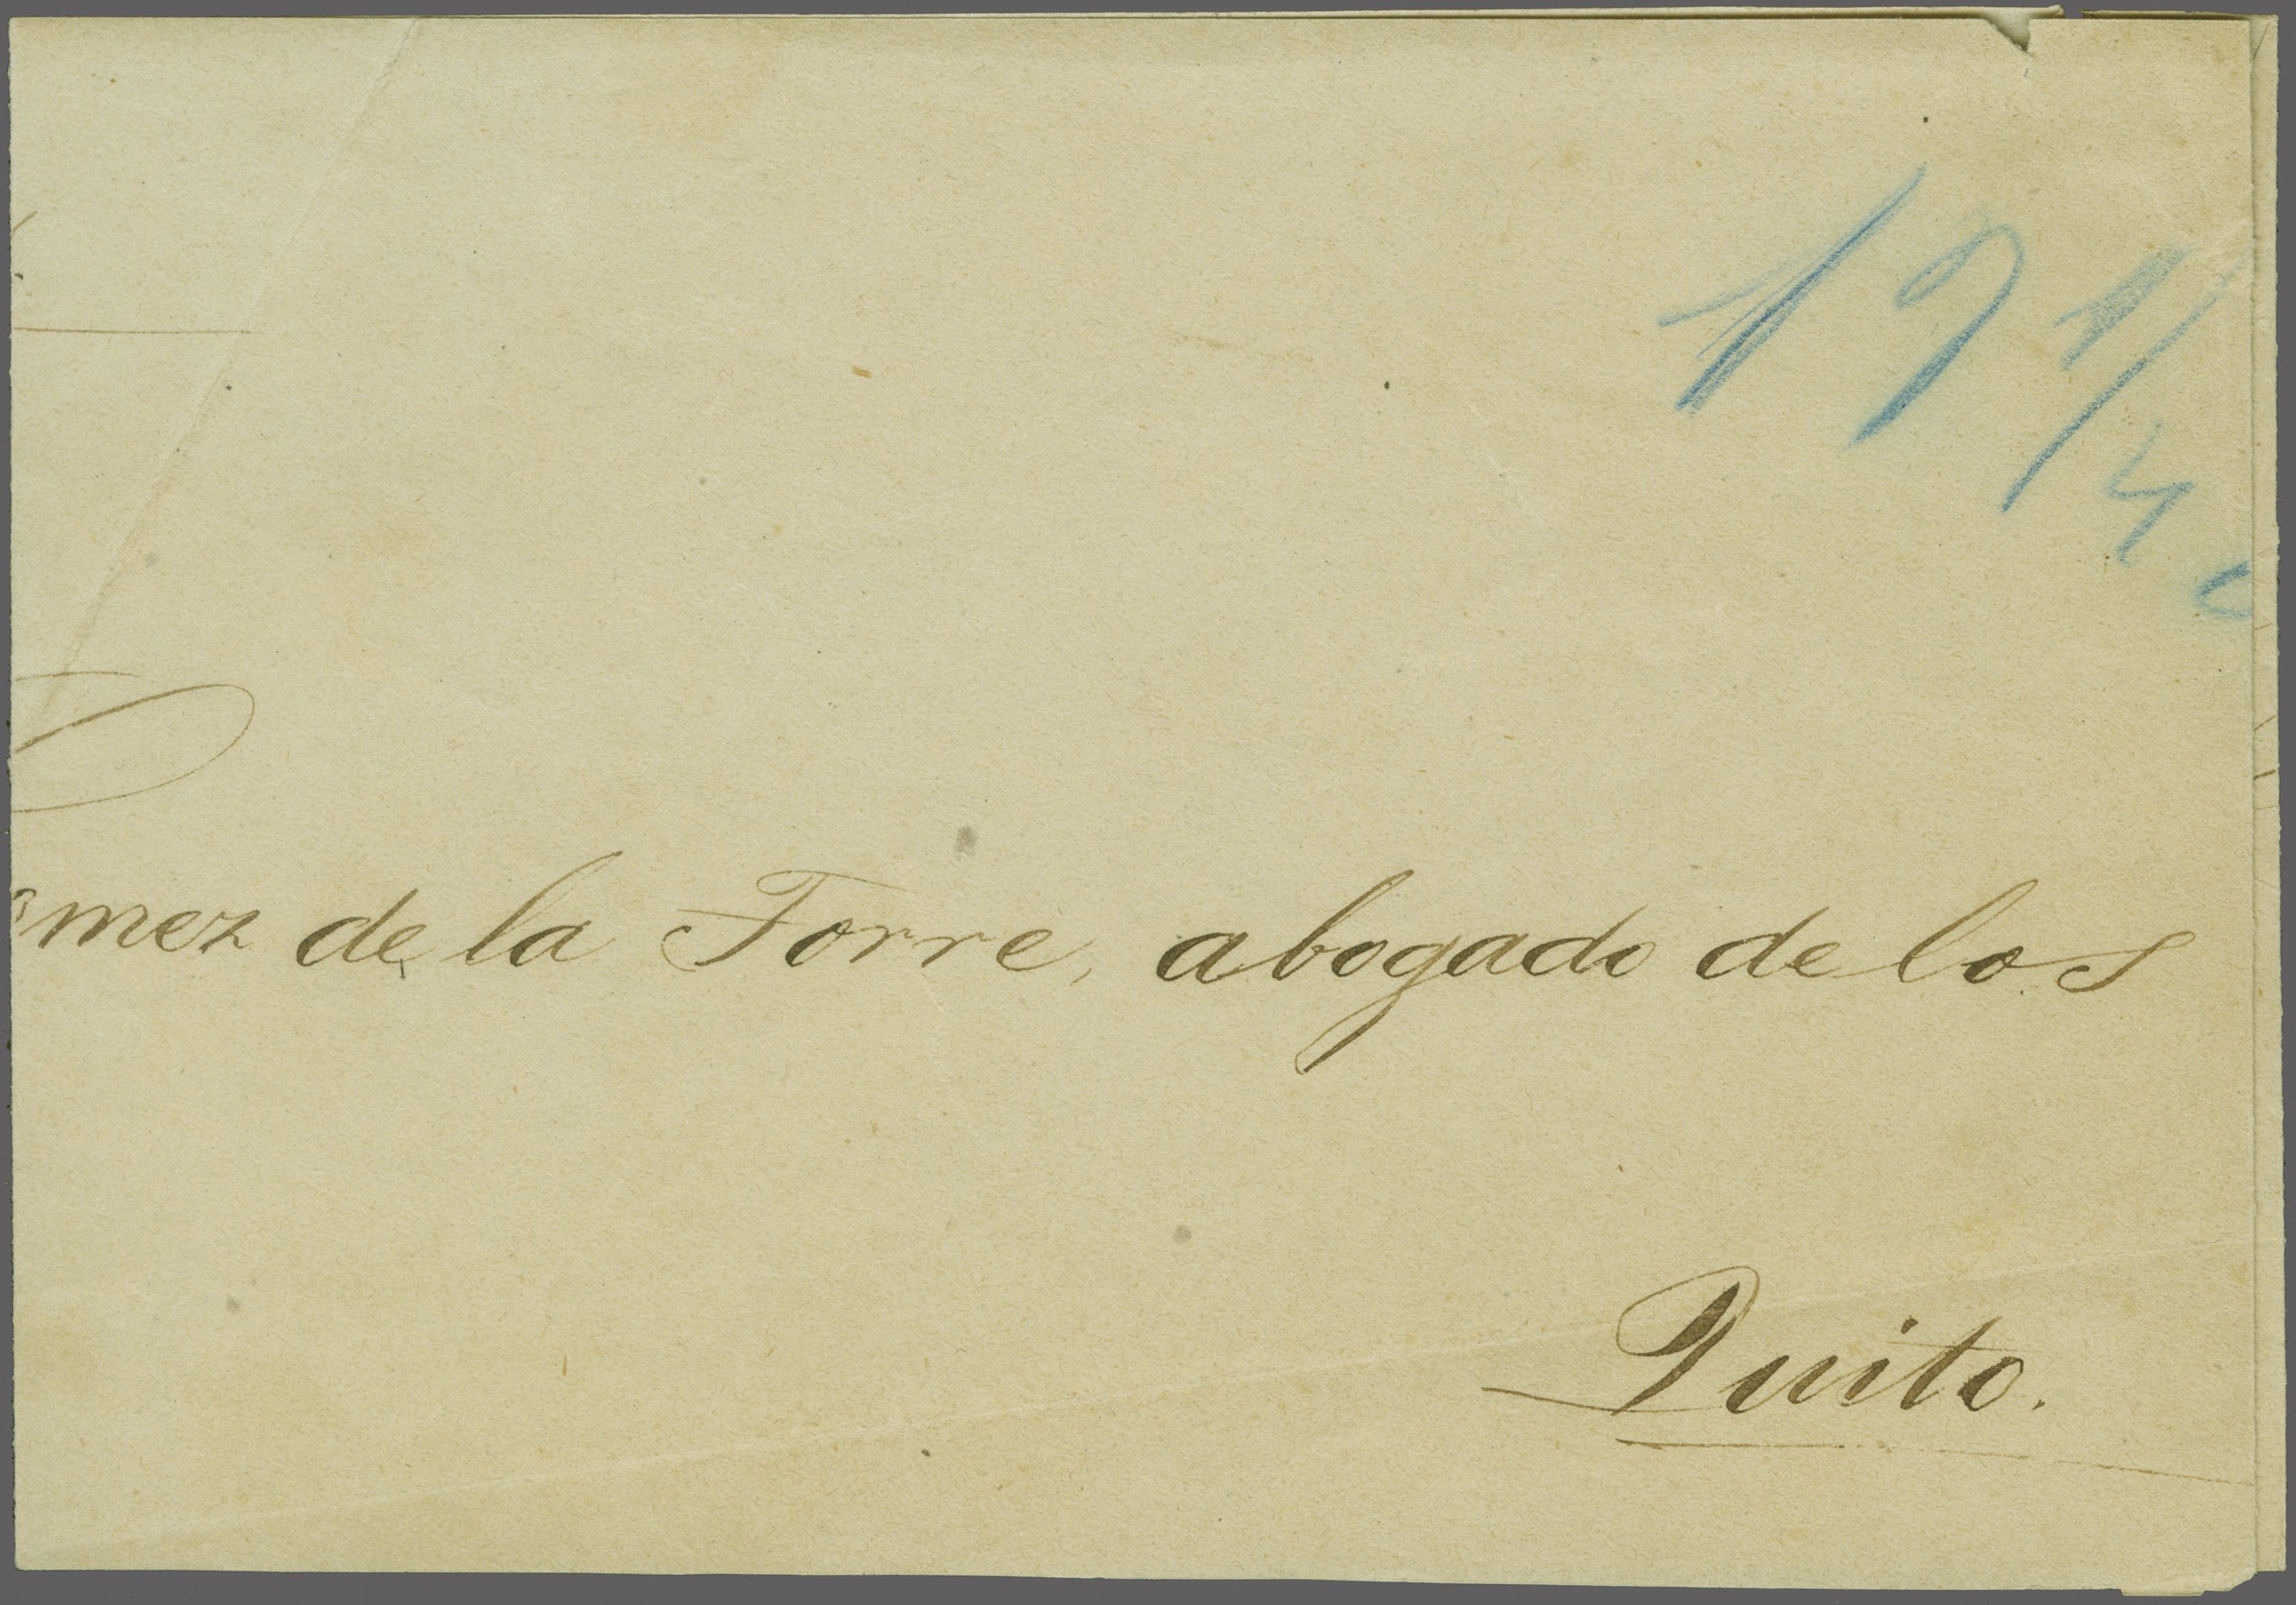 mez de la Torre, abogado de los
Quito.